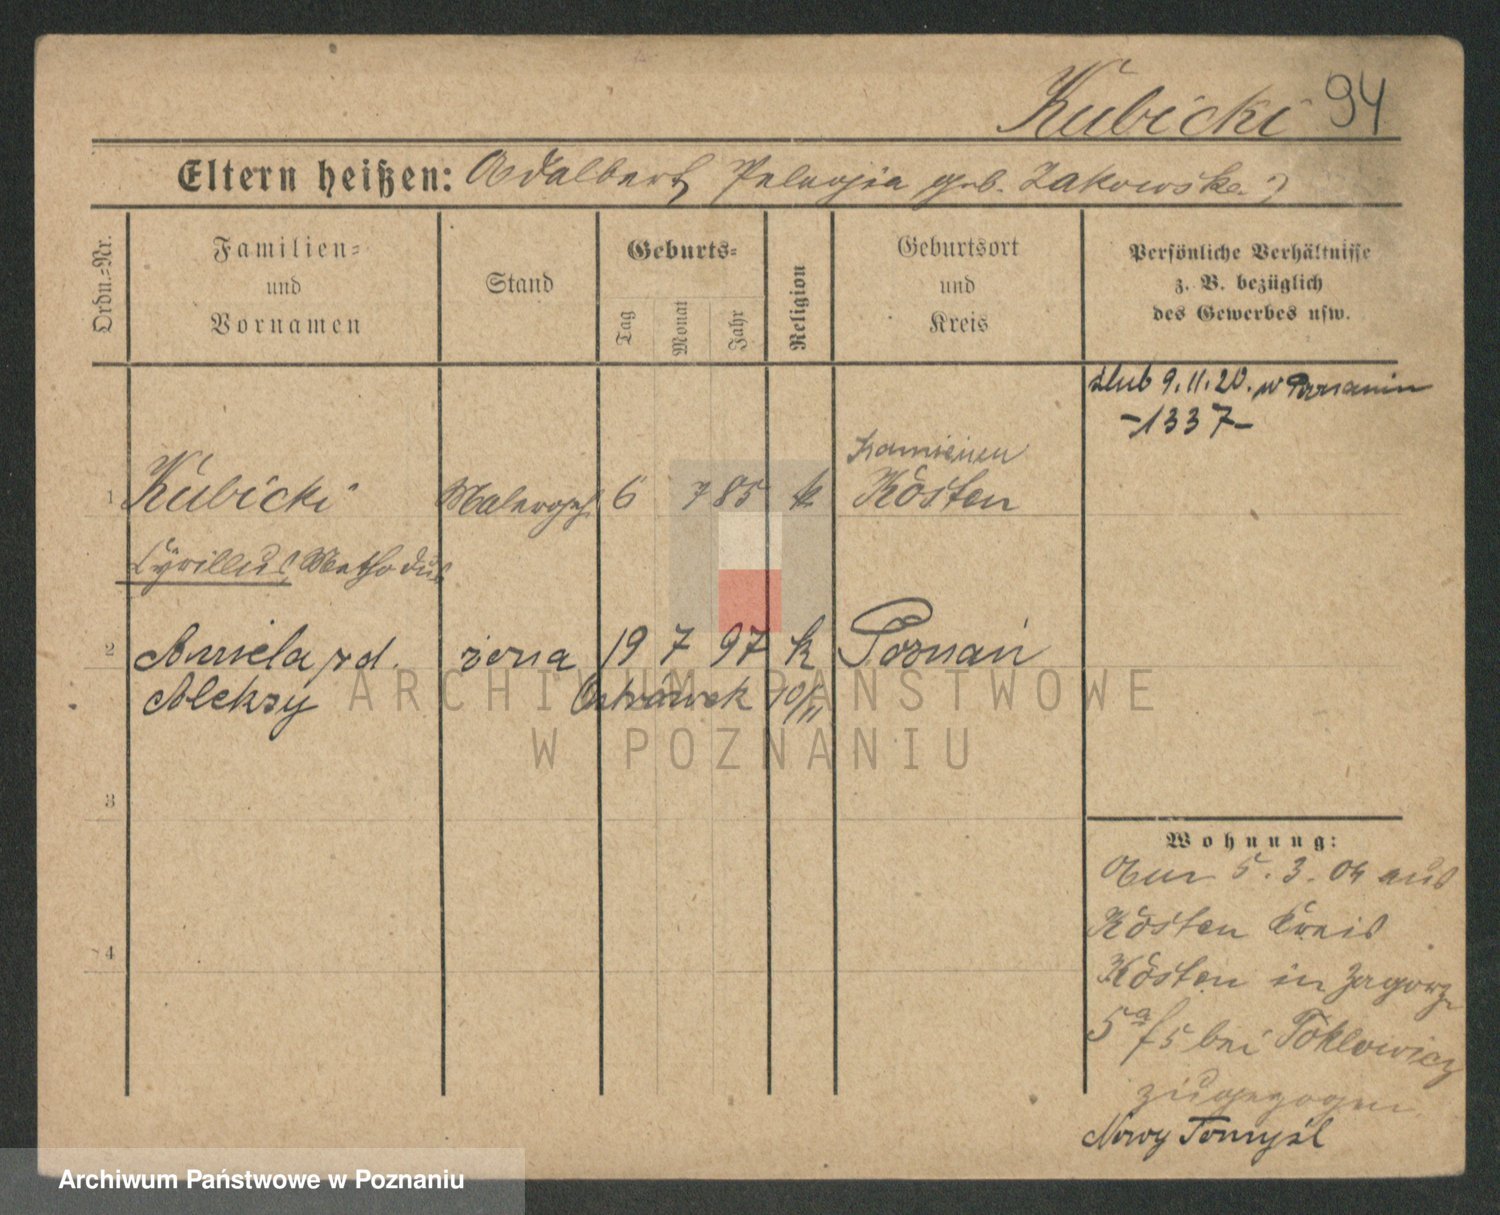 Kubicki 94
Eltern heißen: Adalbert Pelagia geb. Zakowska
Ordn.=Nr.
Familien=
und
Vornamen
Stand
Geburts=
Tag
Monat
Jahr
Religion
Geburtsort
und
Kreis
Persönliche Verhältnisse
z. B. bezüglich
des Gewerbes usw.
ślub 9.11.20. w Poznaniu
-1337-
1 Kubicki Malergeh. 6 7 85 k Kosten
Cyrillus, Methodus
2 Aniela, rd. żona 19 7 97 k Poznań
Aleksy Ostrówek 10/11
3
4
Wohnung:
Am 5.3.04 aus
Kosten Kreis
Kosten in Zagorze
5a/5 bei
zugezogen.
Nowy Tomyśl
ARCHIWUM PAŃSTWOWE
W POZNANIU
Archiwum Państwowe w Poznaniu